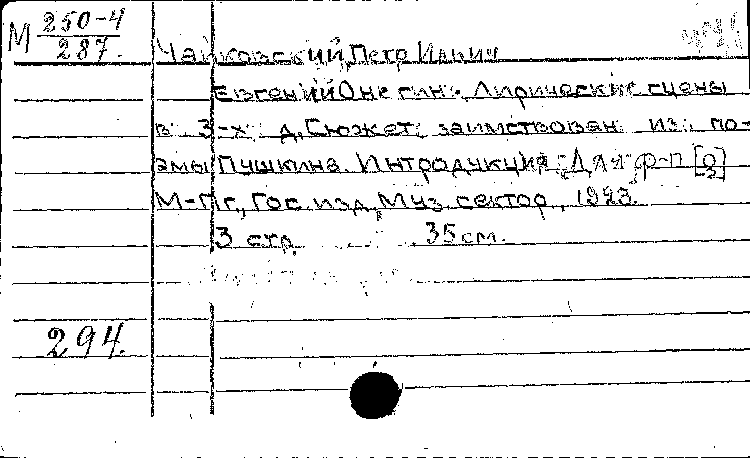 М 250-4
287.
Чайковский, Петр Ильич
Евгений Онегин. Лирические сцены
в 3-х д. Сюжет заимствован из по-
эмы Пушкина. Интродукция. Для ф-п [02]
М-Пг, Гос. изд. Муз. сектор, 1923.
3 стр. 35 см.
294.